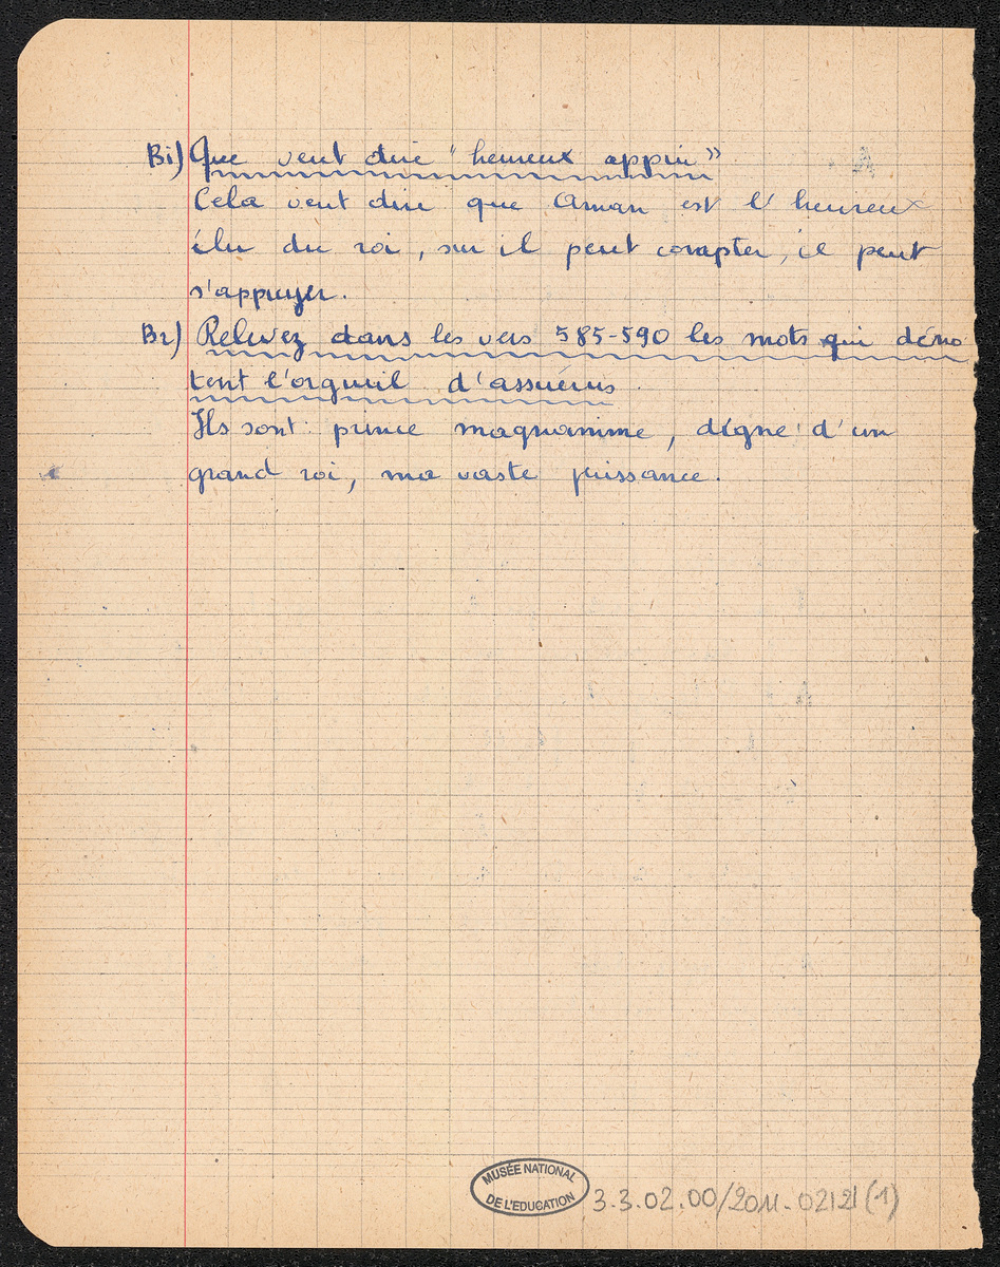 B1) Que veut dire "heureux appui"
Cela veut dire que Aman est l'heureux
élu du roi, sur il peut compter, il peut
s'appuyer.
B2) Relevez dans les vers 585-590 les mots qui déno
tent l'orgueil d'assuérus.
Ils sont: prince magnanime, digne d'un
grand roi, ma vaste puissance.
MUSÉE NATIONAL
DE L'EDUCATION
3.3.02.00/2011-02121(1)